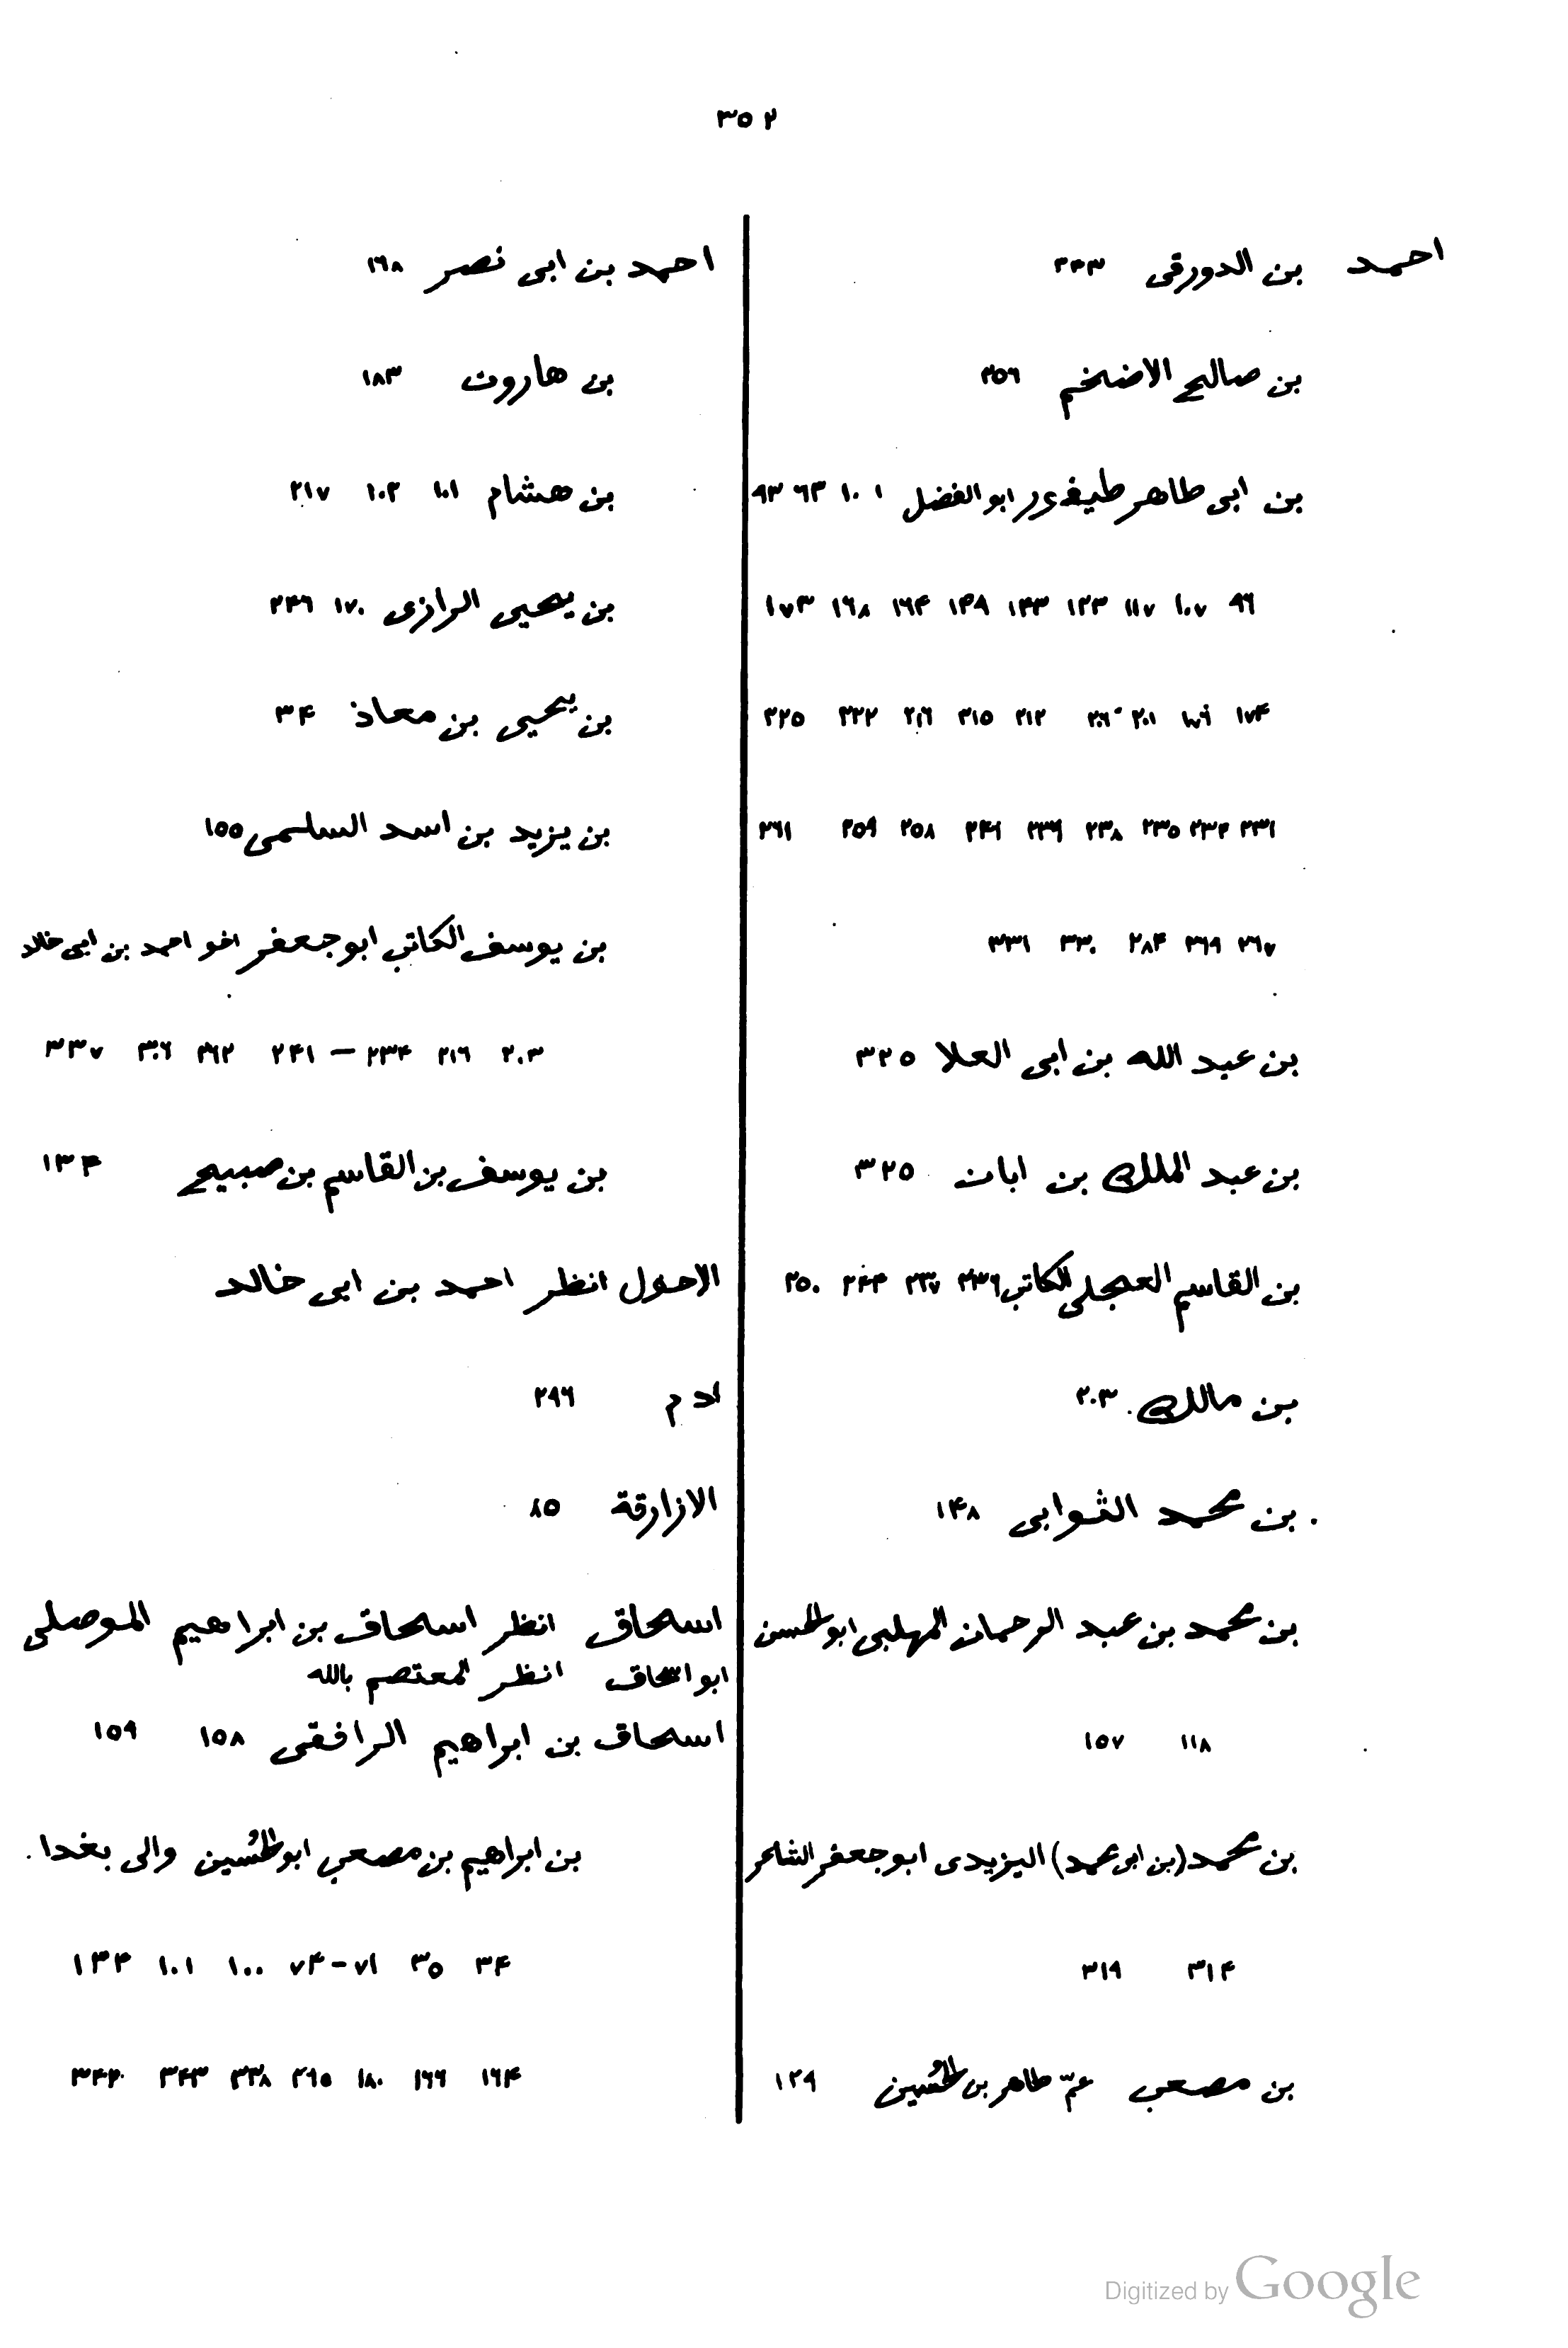 ٣٥٢
احمد بن الدورقى ٢٤٣
بن صالح الاضخم ٢٥٦
بن ابى طاهر طيفور ابو الفضل ١ ١٠ ٦٣ ٩٣
٩٦ ١٠٧ ١١٧ ١٢٣ ١٤٣ ١٤٩ ١٦٤ ١٦٨ ١٧٣
١٧٤ ٢٠١ ٢٠٦ ٢١٢ ٢١٥ ٢١٦ ٢٢٢ ٢٢٥
٢٣١ ٢٣٢ ٢٣٥ ٢٣٨ ٢٣٩ ٢٤٩ ٢٥٨ ٢٥٩ ٢٦١
٢٦٧ ٢٦٩ ٢٨٤ ٣٣٠ ٣٣١
بن عبد الله بن ابى العلا ٣٢٥
بن عبد الملك بن ابان ٣٢٥
بن القاسم العجلى الكاتب ٢٣٦ ٢٣٧ ٢٤٤ ٢٥٠
بن مالك ٢٠٣
بن محمد الثوابى ١٤٨
بن محمد بن عبد الرحمان المهلبى ابو الحسن
١١٨ ١٥٧
بن محمد (بن ابى محمد) اليزيدى ابو جعفر الشاعر
٣١٤ ٣١٩
بن مصعب عمّ طاهر بن الحُسين ١٢٩
احمد بن ابى نصر ١٦٨
بن هارون ١٨٣
بن هشام ١٠١ ١٠٢ ٢١٧
بن يحيى الرازى ١٧٠ ٢٤٦
بن يحيى بن معاذ ٣٤
بن يزيد بن اسد السلمى ١٥٥
بن يوسف الكاتب ابو جعفر اخو احمد بن ابى خالد
٢٠٣ ٢١٦ ٢٣٤ — ٢٤١ ٢٦٢ ٣٠٦ ٣٣٧
بن يوسف بن القاسم بن صبيح ١٣٤
الاحول انظر احمد بن ابى خالد
ادم ٢٩٦
الازارقة ٨٥
اسحاق انظر اسحاق بن ابراهيم الموصلى
ابو اسحاق انظر المعتصم بالله
اسحاق بن ابراهيم الرافقى ١٥٨ ١٥٩
بن ابراهيم بن مصعب ابو الحُسين والى بغدا
٣٤ ٣٥ ٧١-٧٤ ١٠٠ ١٠١ ١٣٤
١٦٤ ١٦٦ ١٨٠ ٢٦٥ ٣٣٨ ٣٤٣
Digitized by Google